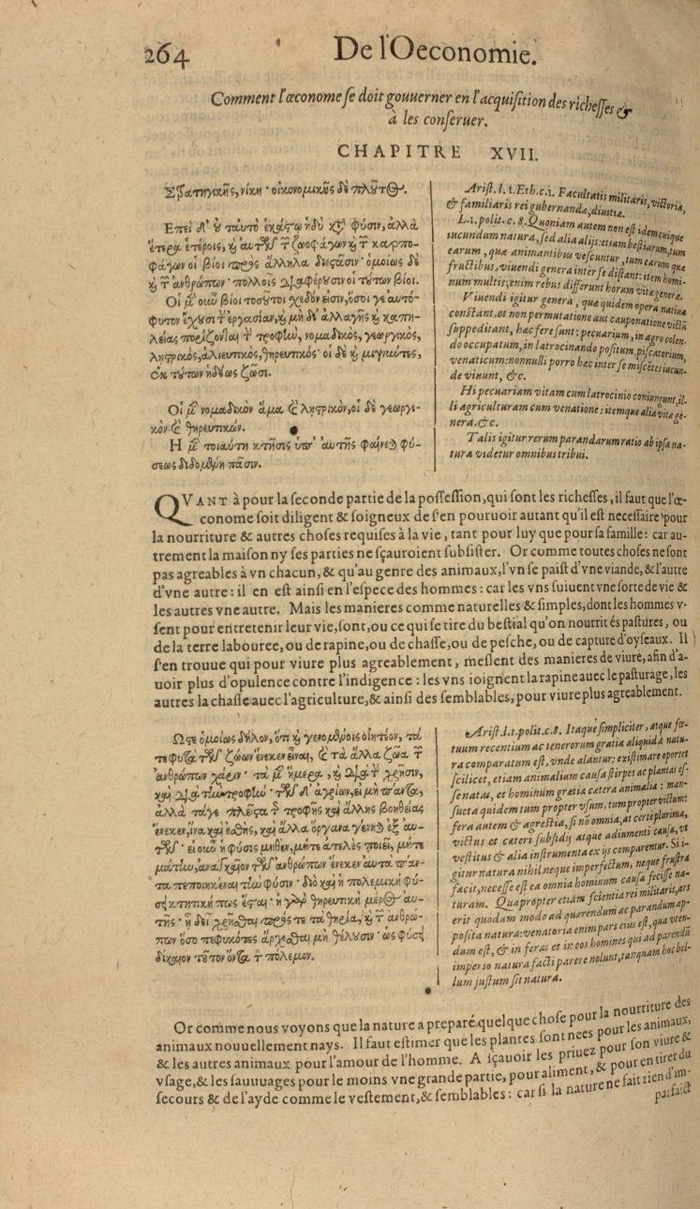 264 De l'Oeconomie.
Comment l'œconome se doit gouuerner en l'acquisition des richesses &
à les conseruer.
CHAPITRE XVII.
Στρατηγικῆς, νίκη· οἰκονομικῆς δὲ πλοῦτος.
Ἐπεὶ δ' οὐ ταυτὸ ἑκάστῳ ἡδὺ κατὰ φύσιν, ἀλλὰ
ἕτερα ἑτέροις, καὶ αὐτῶν τῶν ζωοφάγων καὶ τῶν καρπο-
φάγων οἱ βίοι πρὸς ἄλληλα διεστᾶσιν· ὁμοίως δὲ
καὶ τῶν ἀνθρώπων· πολλοῖς διαφέρουσιν οἱ τούτων βίοι.
Οἱ μὲν οὖν βίοι τοσοῦτοι σχεδὸν εἰσιν, ὅσοι γε αὐτό-
φυτον ἔχουσι τὴν ἐργασίαν, καὶ μὴ δι' ἀλλαγῆς καὶ καπη-
λείας πορίζονται τὴν τροφὴν, νομαδικὸς, γεωργικὸς,
λῃστρικὸς, ἁλιευτικὸς, θηρευτικός· οἱ δὲ καὶ μιγνύντες,
ἐκ τούτων ἡδέως ζῶσι.
Οἱ μὲν νομαδικὸν ἅμα καὶ λῃστρικὸν, οἱ δὲ γεωργι-
κὸν καὶ θηρευτικόν.
Ἡ μὲν τοιαύτη κτῆσις ὑπ' αὐτῆς φαίνεται φύ-
σεως διδομένη πᾶσιν.
Arist. l. 1. Eth. c. 1. Facultatis militaris, victoria,
& familiaris rei gubernandæ, diuitiæ.
L. 1. polit. c. 8. Quoniam autem non est idem cuique
iucundum natura, sed alia alijs: etiam bestiarum, tum
earum, quæ animantibus vescuntur, tum earum quæ
fructibus, viuendi genera inter se distant: item homi-
num multis; enim rebus differunt horum vitæ genera.
Viuendi igitur genera, quæ quidem opera natiua
constant, et non permutatione aut cauponatione victū
suppeditant, hæc fere sunt: pecuarium, in agro colen-
do occupatum, in latrocinando positum, piscatorium,
venaticum: nonnulli porro hæc inter se miscētes iucun-
de viuunt, &c.
Hi pecuariam vitam cum latrocinio coniungunt, il-
li agriculturam cum venatione: itemque alia vitæ ge-
nera. &c.
Talis igitur rerum parandarum ratio ab ipsa na-
tura videtur omnibus tribui.
QVANT à pour la seconde partie de la possession, qui sont les richesses, il faut que l'œ-
conome soit diligent & soigneux de s'en pouruoir autant qu'il est necessaire pour
la nourriture & autres choses requises à la vie, tant pour luy que pour sa famille: car au-
trement la maison ny ses parties ne sçauroient subsister. Or comme toutes choses ne sont
pas agreables à vn chacun, & qu'au genre des animaux, l'vn se paist d'vne viande, & l'autre
d'vne autre: il en est ainsi en l'espece des hommes: car les vns suiuent vne sorte de vie &
les autres vne autre. Mais les manieres comme naturelles & simples, dont les hommes v-
sent pour entretenir leur vie, sont, ou ce qui se tire du bestial qu'on nourrit és pastures, ou
de la terre labouree, ou de rapine, ou de chasse, ou de pesche, ou de capture d'oyseaux. Il
s'en trouue qui pour viure plus agreablement, meslent des manieres de viure, afin d'a-
uoir plus d'opulence contre l'indigence: les vns ioignent la rapine auec le pasturage, les
autres la chasse auec l'agriculture, & ainsi des semblables, pour viure plus agreablement.
Ὥστε ὁμοίως δῆλον, ὅτι καὶ γενομένοις οἰητέον, τά
τε φυτὰ τῶν ζώων ἕνεκεν εἶναι, καὶ τὰ ἄλλα ζῶα τῶν
ἀνθρώπων χάριν· τὰ μὲν ἥμερα, καὶ διὰ τὴν χρῆσιν,
καὶ διὰ τὴν τροφήν· τῶν δ' ἀγρίων, εἰ μὴ πάντα,
ἀλλὰ τά γε πλεῖστα τῆς τροφῆς καὶ ἄλλης βοηθείας
ἕνεκεν, ἵνα καὶ ἐσθὴς, καὶ ἄλλα ὄργανα γένηται ἐξ αὐ-
τῶν· εἰ οὖν ἡ φύσις μηθὲν, μήτε ἀτελὲς ποιεῖ, μήτε
μάτην, ἀναγκαῖον τῶν ἀνθρώπων ἕνεκεν αὐτὰ πάν-
τα πεποιηκέναι τὴν φύσιν· διὸ καὶ ἡ πολεμικὴ φύ-
σει κτητική πως ἔσται· ἡ γὰρ θηρευτικὴ μέρος αὐ-
τῆς· ᾗ δεῖ χρῆσθαι πρός τε τὰ θηρία, καὶ τῶν ἀνθρώ-
πων ὅσοι πεφυκότες ἄρχεσθαι μὴ θέλουσιν· ὡς φύσει
δίκαιον τοῦτον ὄντα τὸν πόλεμον.
Arist. l. 1. polit. c. 8. Itaque simpliciter, atque fœ-
tuum recentium ac tenerorum gratia aliquid à natu-
ra comparatum est, vnde alantur: existimare oportet
scilicet, etiam animalium causa stirpes ac plantas es-
se natas, et hominum gratia cætera animalia: man-
sueta quidem tum propter vsum, tum propter victum:
fera autem & agrestia, si nō omnia, at certe plurima,
victus et cæteri subsidij atque adiumenti causa, vt
vestitus & alia instrumenta ex ijs comparentur. Si i-
gitur natura nihil neque imperfectum, neque frustra
facit, necesse est ea omnia hominum causa fecisse na-
turam. Quapropter etiam scientia rei militaris, art
erit quodam modo ad quærendum ac parandum ap-
posita natura: venatoria enim pars eius est, qua vten-
dum est, & in feras et in eos homines qui ad parendū
imperio natura facti parere nolunt, tanquam hoc bel-
lum justum sit natura.
Or comme nous voyons que la nature a preparé quelque chose pour la nourriture des
animaux nouuellement nays. Il faut estimer que les plantes sont nees pour les animaux,
& les autres animaux pour l'amour de l'homme. A sçauoir les priuez pour son viure &
vsage, & les sauuages pour le moins vne grande partie, pour aliment, & pour en tirer du
secours & de l'ayde comme le vestement, & semblables: car si la nature ne fait rien d'im-
parfaict